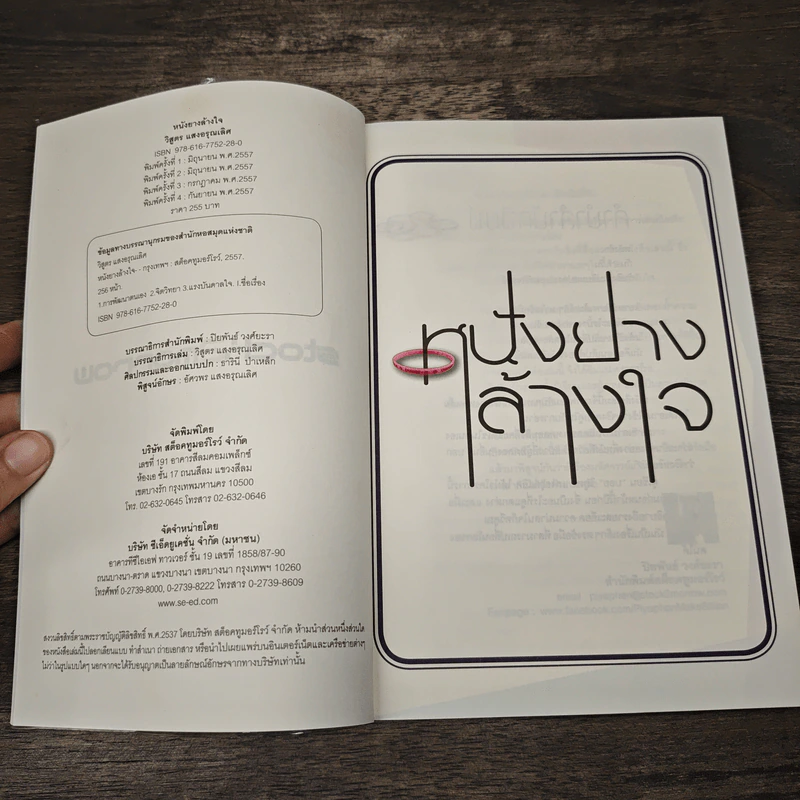 หนังยางล้างใจ
วิสูตร แสงอรุณเลิศ
ISBN 978-616-7752-28-0
พิมพ์ครั้งที่ 1 : มิถุนายน พ.ศ.2557
พิมพ์ครั้งที่ 2 : มิถุนายน พ.ศ.2557
พิมพ์ครั้งที่ 3 : กรกฎาคม พ.ศ.2557
พิมพ์ครั้งที่ 4 : กันยายน พ.ศ.2557
ราคา 255 บาท
ข้อมูลทางบรรณานุกรมของสำนักหอสมุดแห่งชาติ
วิสูตร แสงอรุณเลิศ
หนังยางล้างใจ.- - กรุงเทพฯ : สต็อคทูมอร์โรว์, 2557.
256 หน้า
1.การพัฒนาตนเอง 2 จิตวิทยา 3.แรงบันดาลใจ. I.ชื่อเรื่อง
ISBN 978-616-7752-28-0
บรรณาธิการสำนักพิมพ์ : ปิยพันธ์ วงศ์ยะรา
บรรณาธิการเล่ม : วิสูตร แสงอรุณเลิศ
ศิลปกรรมและออกแบบปก : ธารินี ป่าเหล็ก
พิสูจน์อักษร : อัศวพร แสงอรุณเลิศ
จัดพิมพ์โดย
บริษัท สต็อคทูมอร์โรว์ จำกัด
เลขที่ 191 อาคารสีลมคอมเพล็กซ์
ห้องเอ ชั้น 17 ถนนสีลม แขวงสีลม
เขตบางรัก กรุงเทพมหานคร 10500
โทร. 02-632-0645 โทรสาร 02-632-0646
จัดจำหน่ายโดย
บริษัท ซีเอ็ดยูเคชั่น จำกัด (มหาชน)
อาคารทีซีไอเอฟ ทาวเวอร์ ชั้น 19 เลขที่ 1858/87-90
ถนนบางนา-ตราด แขวงบางนา เขตบางนา กรุงเทพฯ 10260
โทรศัพท์ 0-2739-8000, 0-2739-8222 โทรสาร 0-2739-8609
www.se-ed.com
สงวนลิขสิทธิ์ตามพระราชบัญญัติลิขสิทธิ์ พ.ศ.2537 โดยบริษัท สต็อคทูมอร์โรว์ จำกัด ห้ามนำส่วนหนึ่งส่วนใด
ของหนังสือเล่มนี้ไปลอกเลียนแบบ ทำสำเนา ถ่ายเอกสาร หรือนำไปเผยแพร่บนอินเตอร์เน็ตและเครือข่ายต่างๆ
ไม่ว่าในรูปแบบใดๆ นอกจากจะได้รับอนุญาตเป็นลายลักษณ์อักษรจากทางบริษัทเท่านั้น
หนังยาง
ล้างใจ